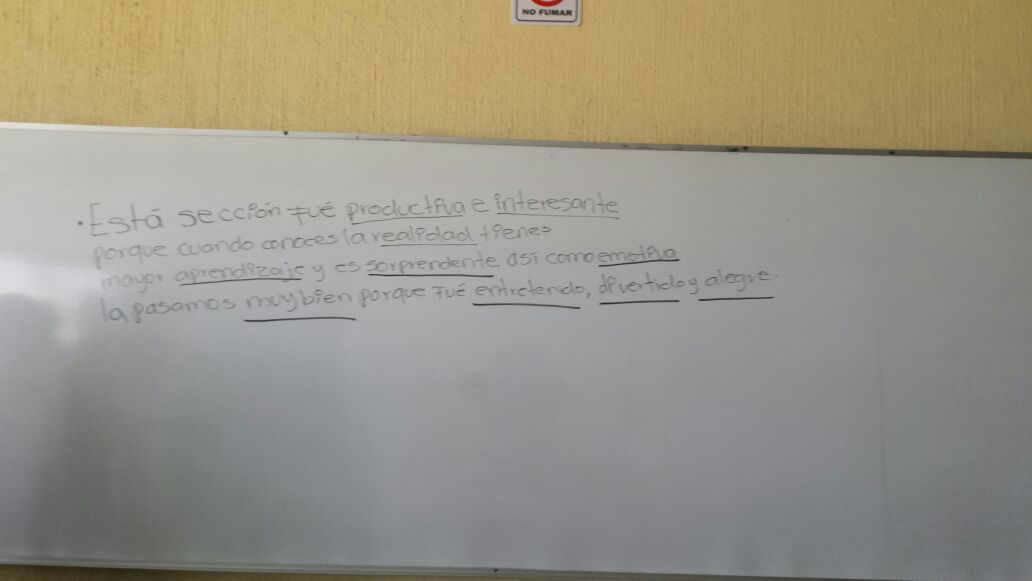 NO FUMAR
. Está sección fué productiva e interesante
porque cuando conoces la realidad tienes
mayor aprendizaje y es sorprendente así como emotiva
la pasamos muy bien porque fué entretenido, divertido y alegre.